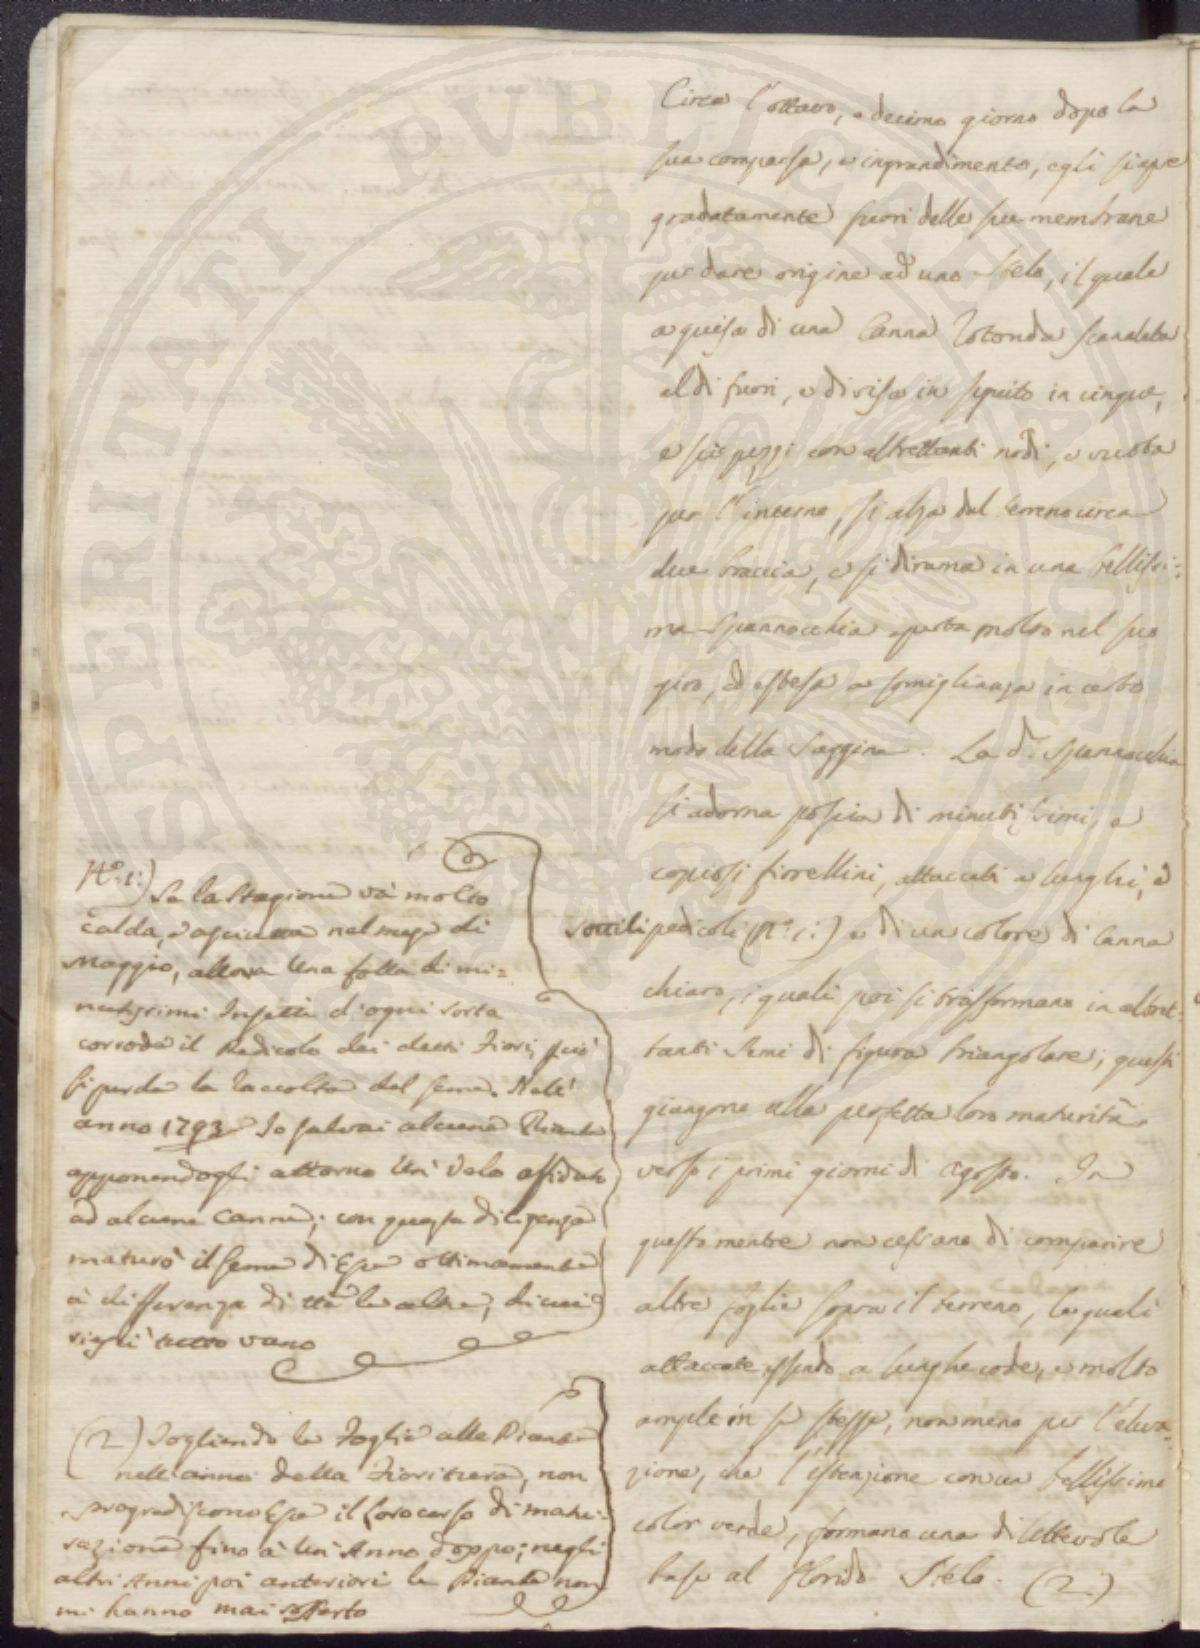 Circa l'ottavo, o decimo giorno dopo la
sua comparsa, e ingrandimento, egli si apre
gradatamente fuori delle sue membrane
per dare origine ad uno Stelo, il quale
a guisa di una Canna rotonda scanalata
al di fuori, e divisa in seguito in cinque,
o sei pezzi con altrettanti nodi, e vuota
per l'interno, si alza dal terreno circa
due braccia, e si dirama in una bellissi=
ma Spannocchia aperta molto nel suo
giro, ed estesa a somiglianza in certo
modo della Saggina. La d.ª Spannocchia
si adorna poscia di minutissimi, e
copiosi fiorellini, attaccati a lunghi, e
sottili pedicoli (N.º 1:) e di un colore di Canna
chiaro, i quali poi si trasformano in altret=
tanti Semi di figura triangolare; questi
giungono alla perfetta loro maturità
verso i primi giorni di Agosto. In
questo mentre non cessano di comparire
altre foglie sopra il terreno, le quali
attaccate essendo a lunghe code, e molto
ample in se stesse, non meno per l'eleva=
zione, che l'estensione con un bellissimo
color verde, formano una dilettevole
base al florido Stelo. (2.)
N.º 1:) Se la Stagione và molto
calda, e asciutta nel mese di
Maggio, allora una folla di mi=
nutissimi Insetti d'ogni sorta
corrode il Pedicolo dei detti Fiori, più
si perde la raccolta del seme. Nell'
anno 1793 Io salvai alcune Piante
apponendogli attorno un Velo affidato
ad alcune Canne; con questa diligenza
maturò il seme di Esse ottimamente
à differenza di tte le altre, di cui
viddi tutto vano
(2) Togliendo le Foglie alle Piante
nell'anno della Fioritura, non
progrediscono Esse il loro corso di matu=
razione fino à un Anno doppo; negli
altri Anni poi anteriori le Piante non
mi hanno mai sofferto